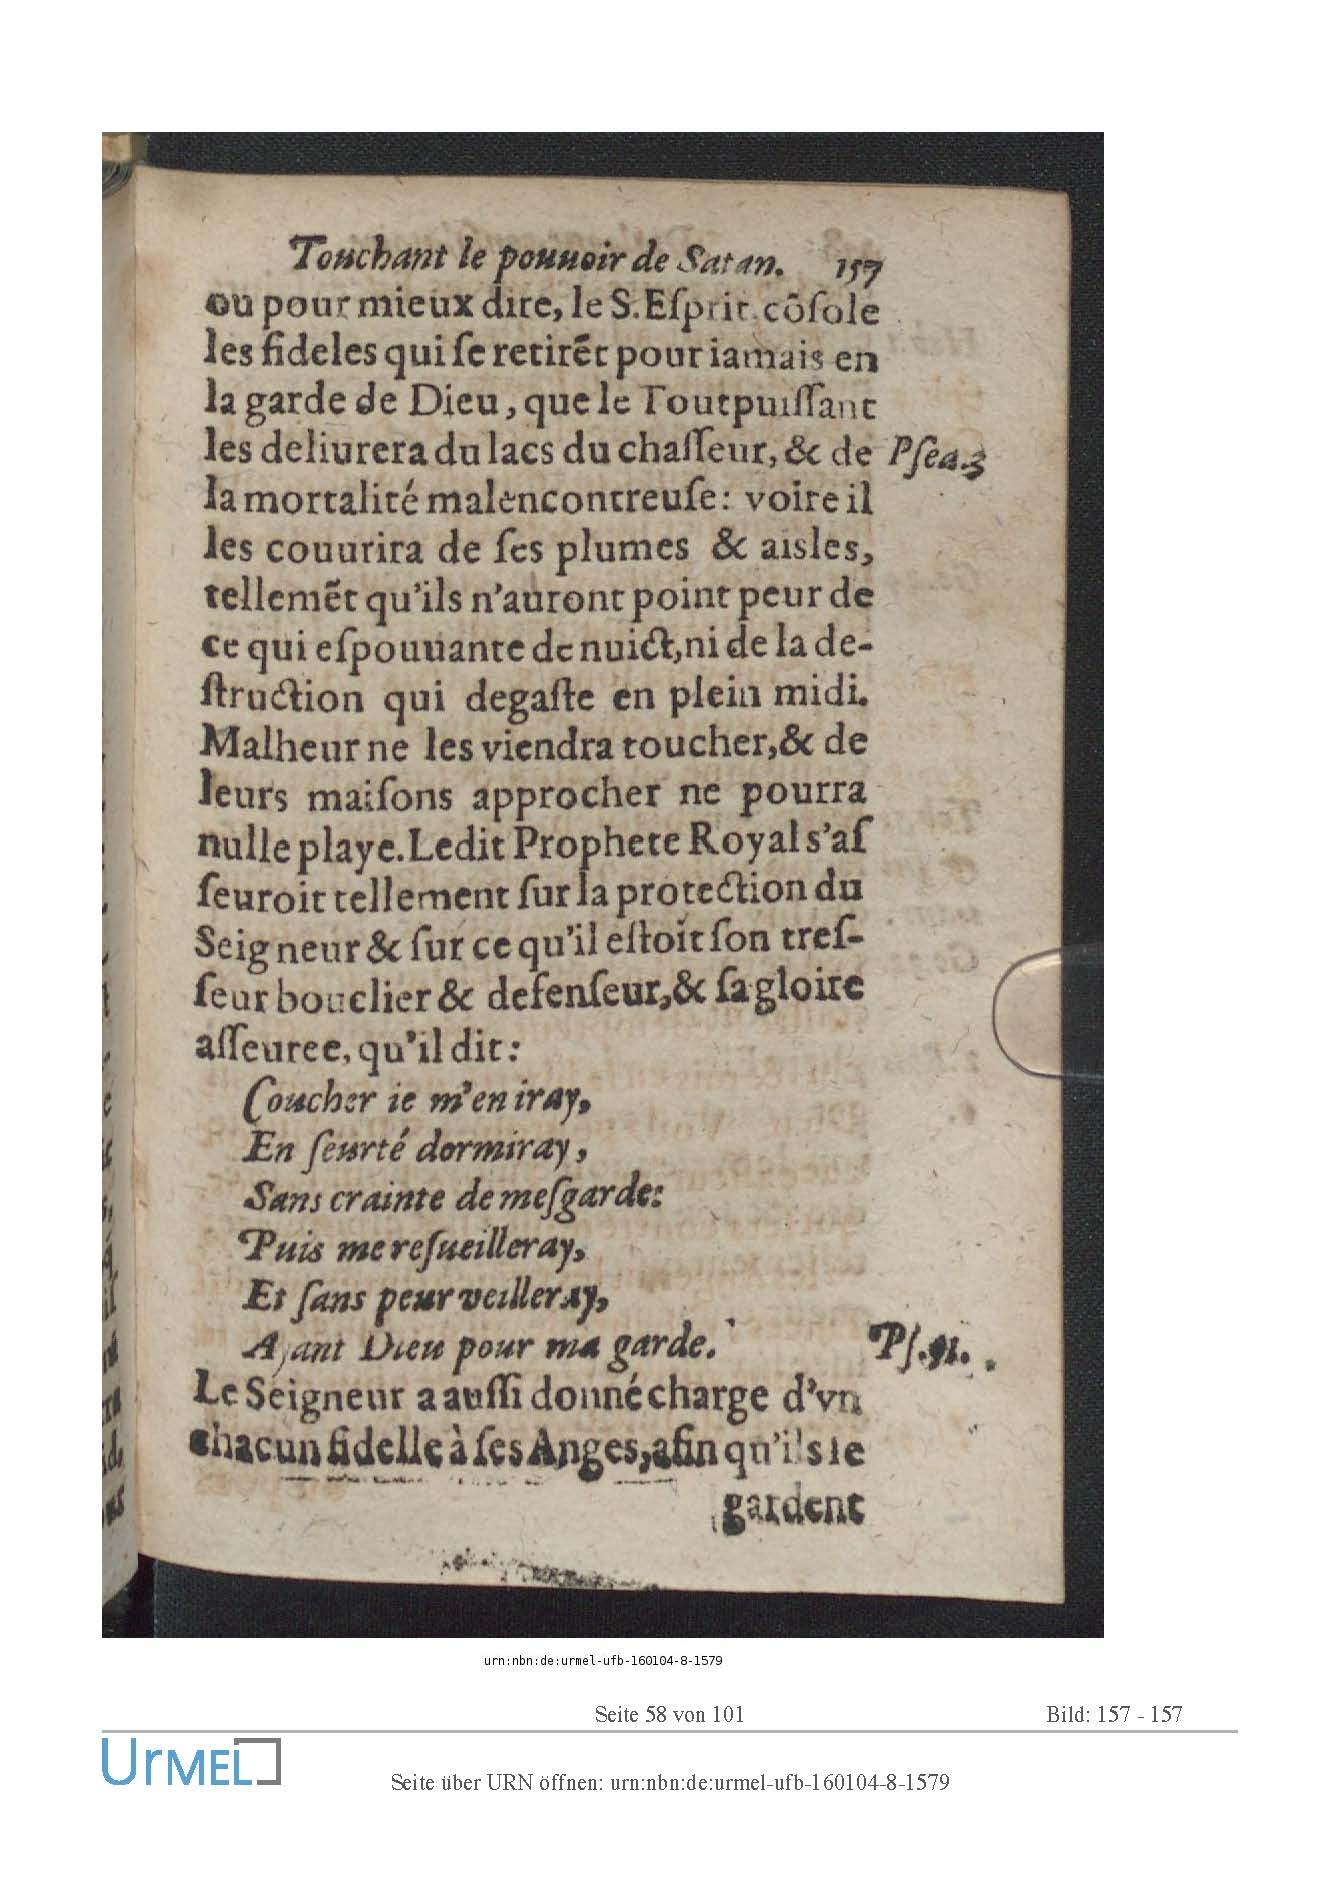 Touchant le pouuoir de Satan. 157
ou pour mieux dire, le S. Eſprit. cõſole
les fideles qui ſe retirẽt pour iamais en
la garde de Dieu, que le Toutpuiſſant
les deliurera du lacs du chaſſeur, & de Pſea.3
la mortalité malencontreuſe: voire il
les couurira de ſes plumes & aisles,
tellemẽt qu'ils n'auront point peur de
ce qui eſpouuante de nuict, ni de la de-
ſtruction qui degaſte en plein midi.
Malheur ne les viendra toucher, & de
leurs maiſons approcher ne pourra
nulle playe. Ledit Prophete Royal s'aſ
ſeuroit tellement ſur la protection du
Seigneur & ſur ce qu'il eſtoit ſon treſ-
ſeur bouclier & defenſeur, & ſa gloire
aſſeuree, qu'il dit:
Coucher ie m'en iray,
En ſeurté dormiray,
Sans crainte de meſgarde:
Puis me reſueilleray,
Et ſans peur veilleray,
Ayant Dieu pour ma garde. Pſ.91.
Le Seigneur a auſſi donné charge d'vn
chacun fidelle à ſes Anges, afin qu'ils le
gardent
urn:nbn:de:urmel-ufb-160104-8-1579
Seite 58 von 101 Bild: 157 - 157
UrMEL
Seite über URN öffnen: urn:nbn:de:urmel-ufb-160104-8-1579